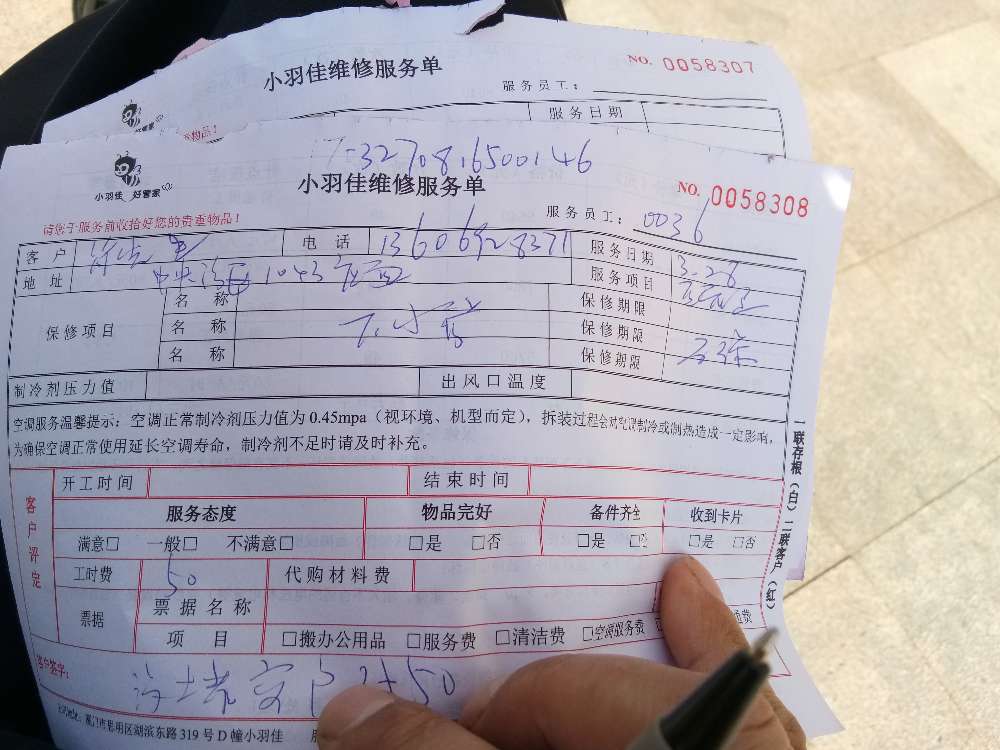 小羽佳维修服务单
NO. 0058307
服务员工：
服务日期
物品！
3270816500146
小羽佳 好管家
小羽佳维修服务单
NO. 0058308
请您于服务前收拾好您的贵重物品！
服务员工： 0036
客户 电话 13606928371 服务日期 3.28
地址 1043 服务项目
保修项目 名称 保修期限
名称 保修期限
名称 保修期限
制冷剂压力值 出风口温度
空调服务温馨提示：空调正常制冷剂压力值为 0.45mpa（视环境、机型而定），拆装过程会对空调制冷或制热造成一定影响，
为确保空调正常使用延长空调寿命，制冷剂不足时请及时补充。
一联存根（白）二联客户（红）
客户评定
开工时间 结束时间
服务态度 物品完好 备件齐全 收到卡片
满意□ 一般□ 不满意□ □是 □否 □是 □否 □是 □否
工时费 50 代购材料费
票据 票据名称
项目 □搬办公用品 □服务费 □清洁费 □空调服务费
客户签字：
50
厦门市思用区湖滨东路 319 号 D 幢小羽佳